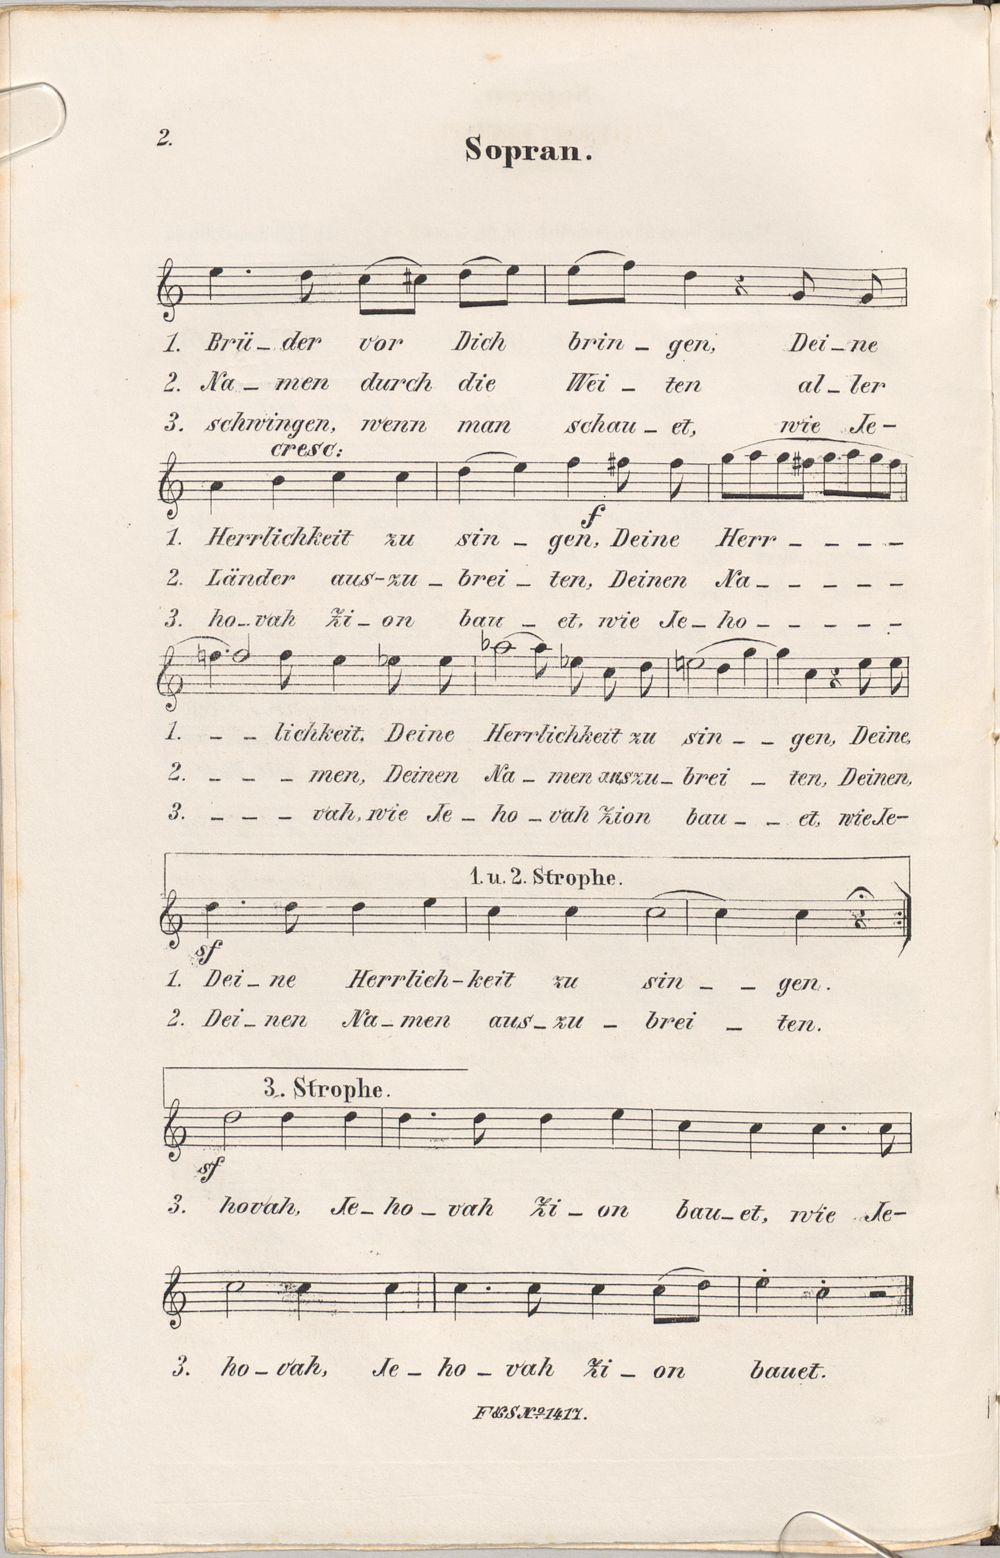 2.
Sopran.
1. Brü_der vor Dich brin_gen, Dei_ne
2. Na_men durch die Wei_ten al_ler
3. schwingen, wenn man schau_et, wie Je-
cresc:
f
1. Herrlichkeit zu sin_gen, Deine Herr_ _ _ _
2. Länder aus-zu_brei_ten, Deinen Na_ _ _ _ _
3. ho_vah Zi_on bau_et, wie Je_ho_ _ _ _ _
1. _ _lichkeit, Deine Herrlichkeit zu sin_ _gen, Deine,
2. _ _ _men, Deinen Na_men auszu_brei_ten, Deinen,
3. _ _ _vah, wie Je_ho_vah Zion bau_ _et, wie Je-
1. u. 2. Strophe.
sf
1. Dei_ne Herrlich-keit zu sin_ _gen.
2. Dei_nen Na_men aus_zu_brei_ten.
3. Strophe.
sf
3. hovah, Je_ho_vah Zi_on bau_et, wie Je-
3. ho_vah, Je_ho_vah Zi_on bauet.
F&S No 1417.